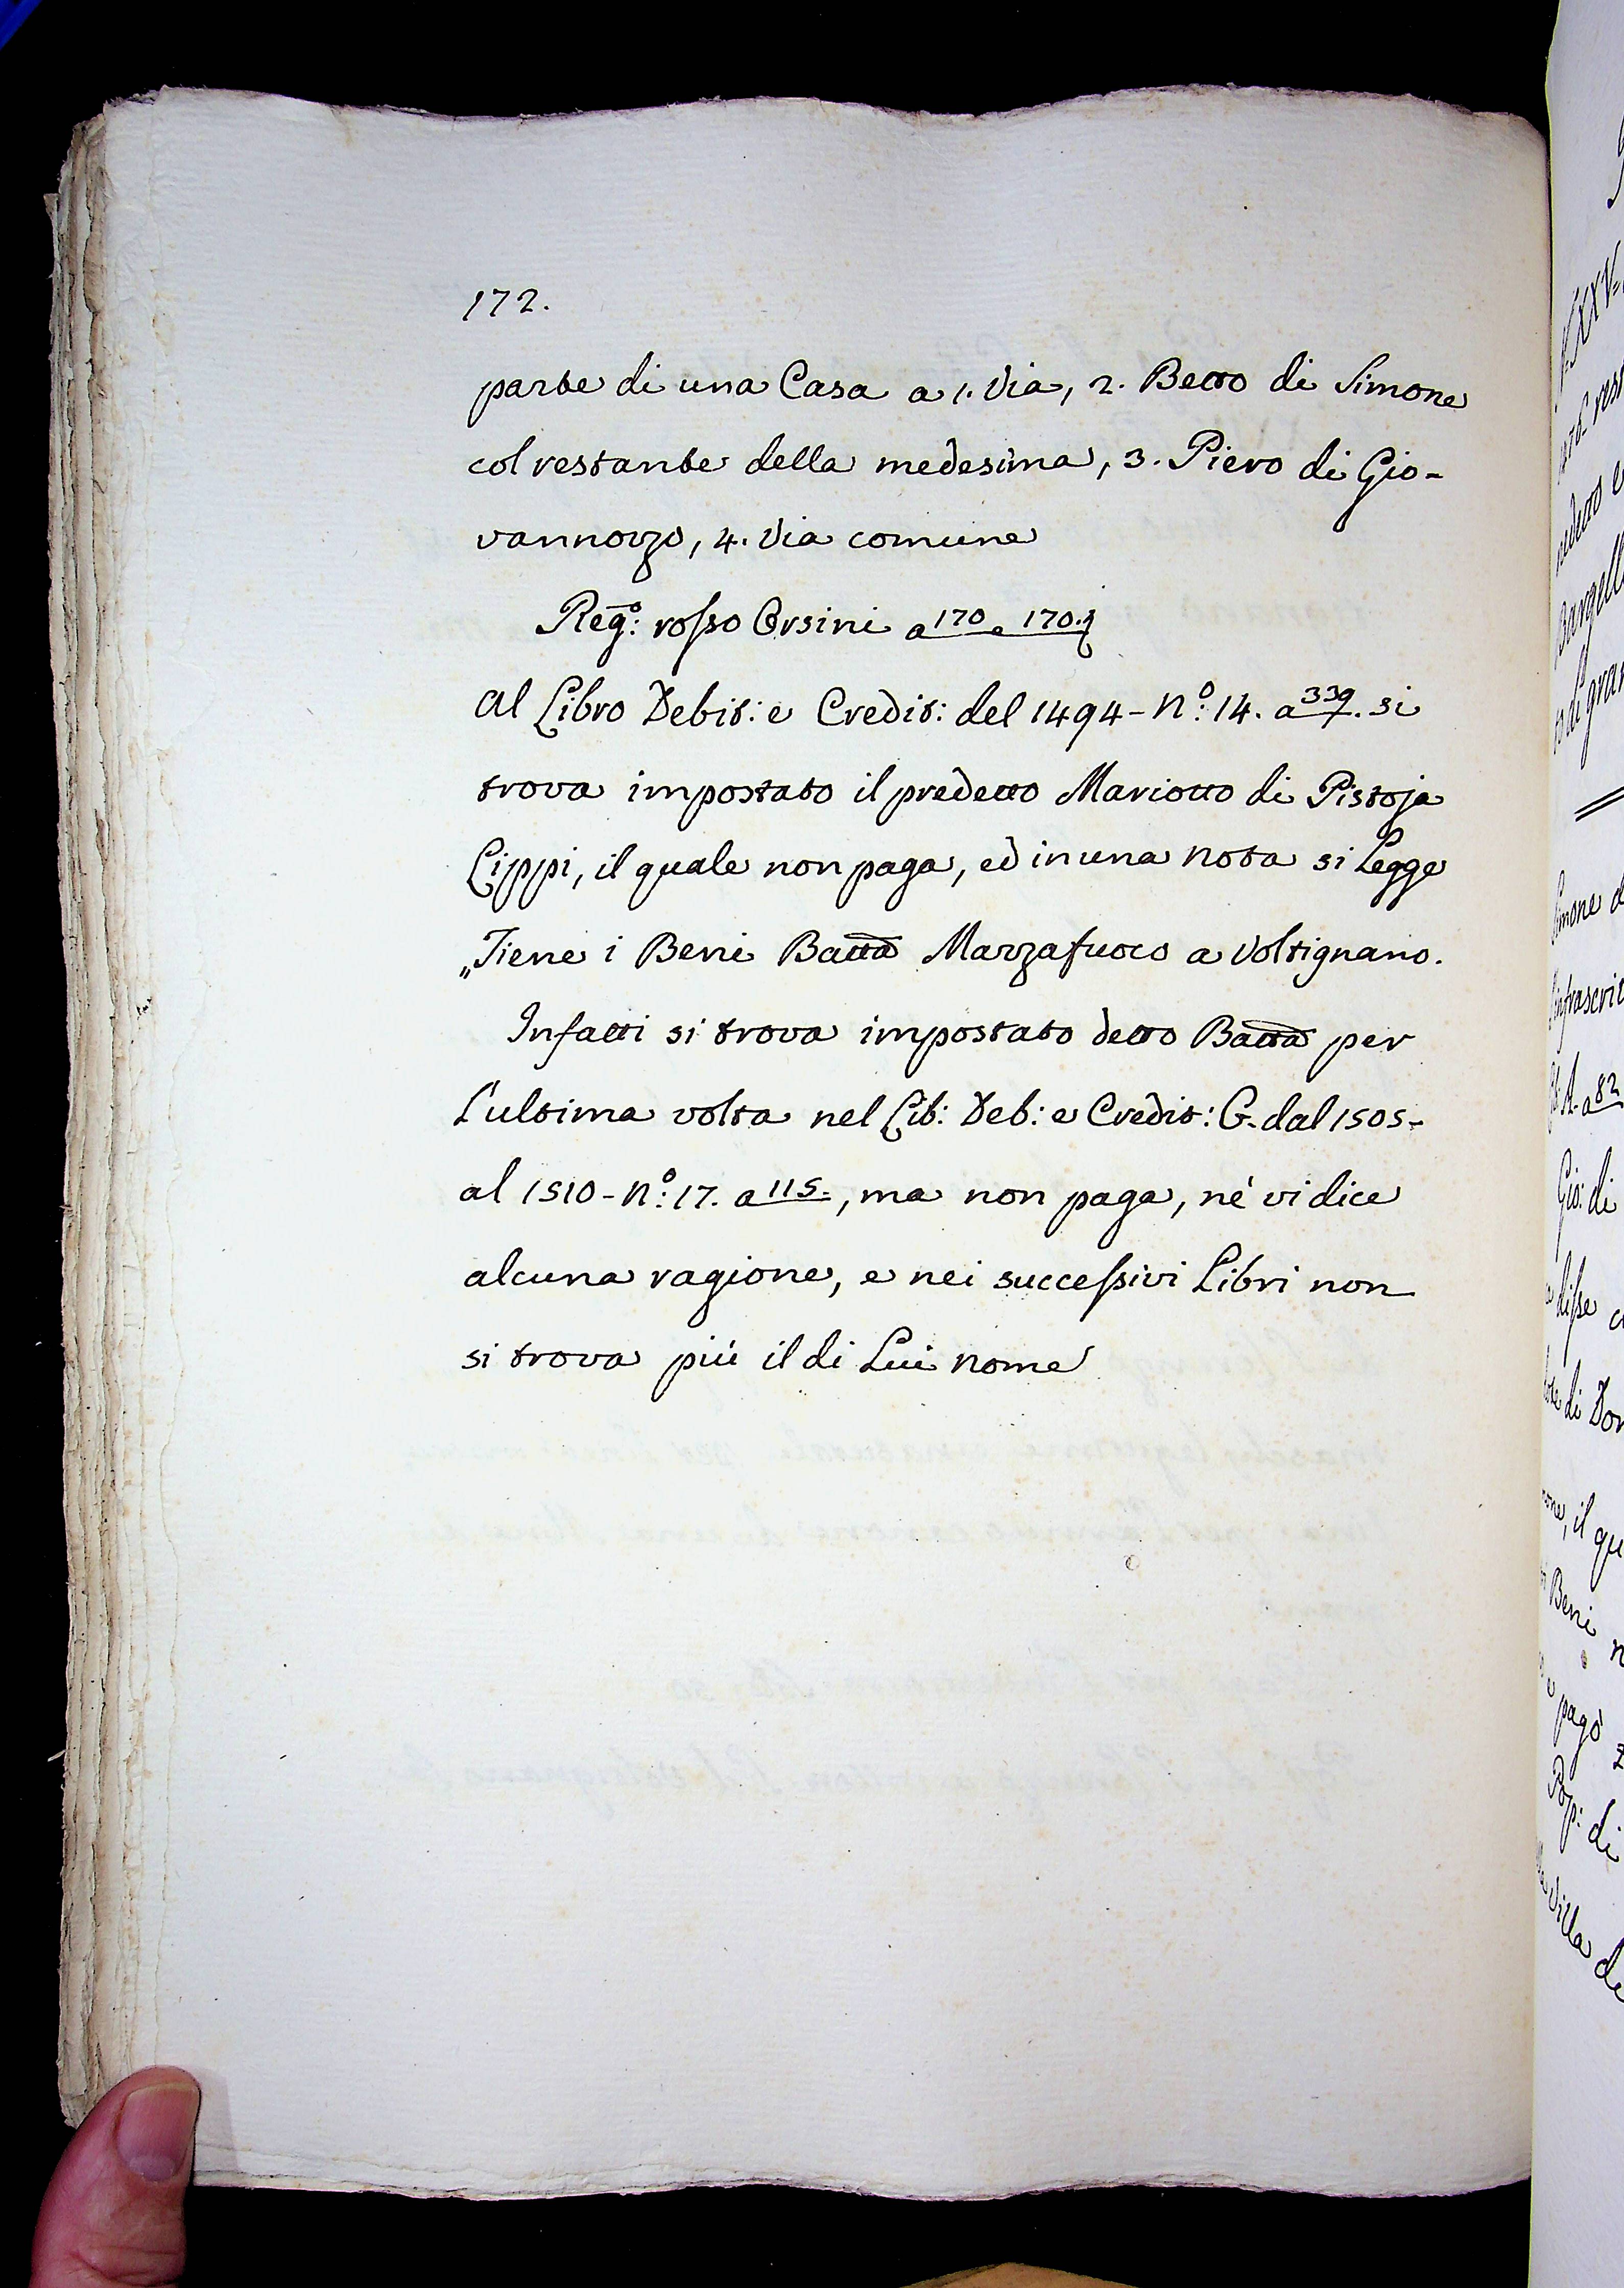 172.
parte di una Casa a 1. Via, 2. Betto di Simone
col restante della medesima, 3. Piero di Gio-
vannozzo, 4. Via comune
Reg.º: rosso Orsini a 170 e 170.
Al Libro Debit: e Credit: del 1494 - Nº: 14. a 339. si
trova impostato il predetto Mariotto di Pistoja
Lippi, il quale non paga, ed in una Nota si Legge
„Tiene i Beni Batta Mazzafuoco a Voltignano.
Infatti si trova impostato detto Batta per
L'ultima volta nel Lib: Deb: e Credit: G. dal 1505-
al 1510 - Nº: 17. a 115., ma non paga, nè vi dice
alcuna ragione, e nei successivi Libri non
si trova più il di Lui nome